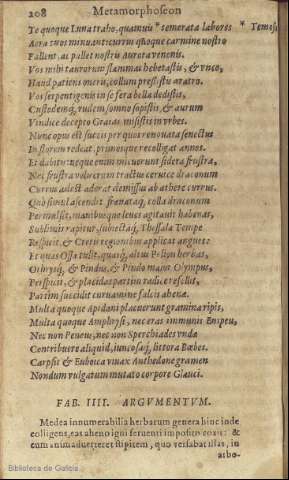 208 Metamorphoseon
Te quoque Luna traho, quamuis * semerata labores * Temes
Aera tuos minuant: currus quoque carmine nostro
Pallent: aui pallet nostris Aurora venenis.
Vos mihi taurorum flammas hebetastis, & vnco,
Haud patiens oneris, collum pressistis aratro.
Vos serpentigenis in se fera bella dedistis,
Custodemq́; rudem somno sopistis, & aurum
Vindice decepto Graias misistis in vrbes.
Nunc opus est succis per quos renouata senectus
In florem redeat, primosque recolligat annos.
Et dabitis: neque enim micuerunt sidera frustra,
Nec frustra volucrum tractus ceruice draconum
Currus adest: aderat demissus ab aethere currus.
Quò simul ascendit: frenataq́; colla draconum
Permulsit, manibusque leues agitauit habenas,
Sublimis rapitur, subiectaq́; Thessala Tempe
Respicit, & Cretis regionibus applicat angues:
Et quas Ossa tulit, quasq́; altus Pelion herbas,
Othrysq́; & Pindus, & Pindo maior Olympus,
Perspicit, & placitas partim radice reuellit,
Partim succidit curuamine falcis ahenae.
Multa quoque Apidani placuerunt gramina ripis,
Multa quoque Amphrysi, nec eras immunis Enipeu,
Nec non Peneus, nec non Sperchiades vnda
Contribuere aliquid, iuncosaq́; littora Boebes.
Carpsit & Euboica viuax Anthedone gramen
Nondum vulgatum mutato corpore Glauci.
FAB. IIII. ARGVMENTVM.
Medea innumerabilia herbarum genera hinc inde
colligens, eas aheno igni feruenti imposito coxit: &
cum animaduerteret stipitem, quo versabat illas, in
arbo-
Biblioteca de Galicia